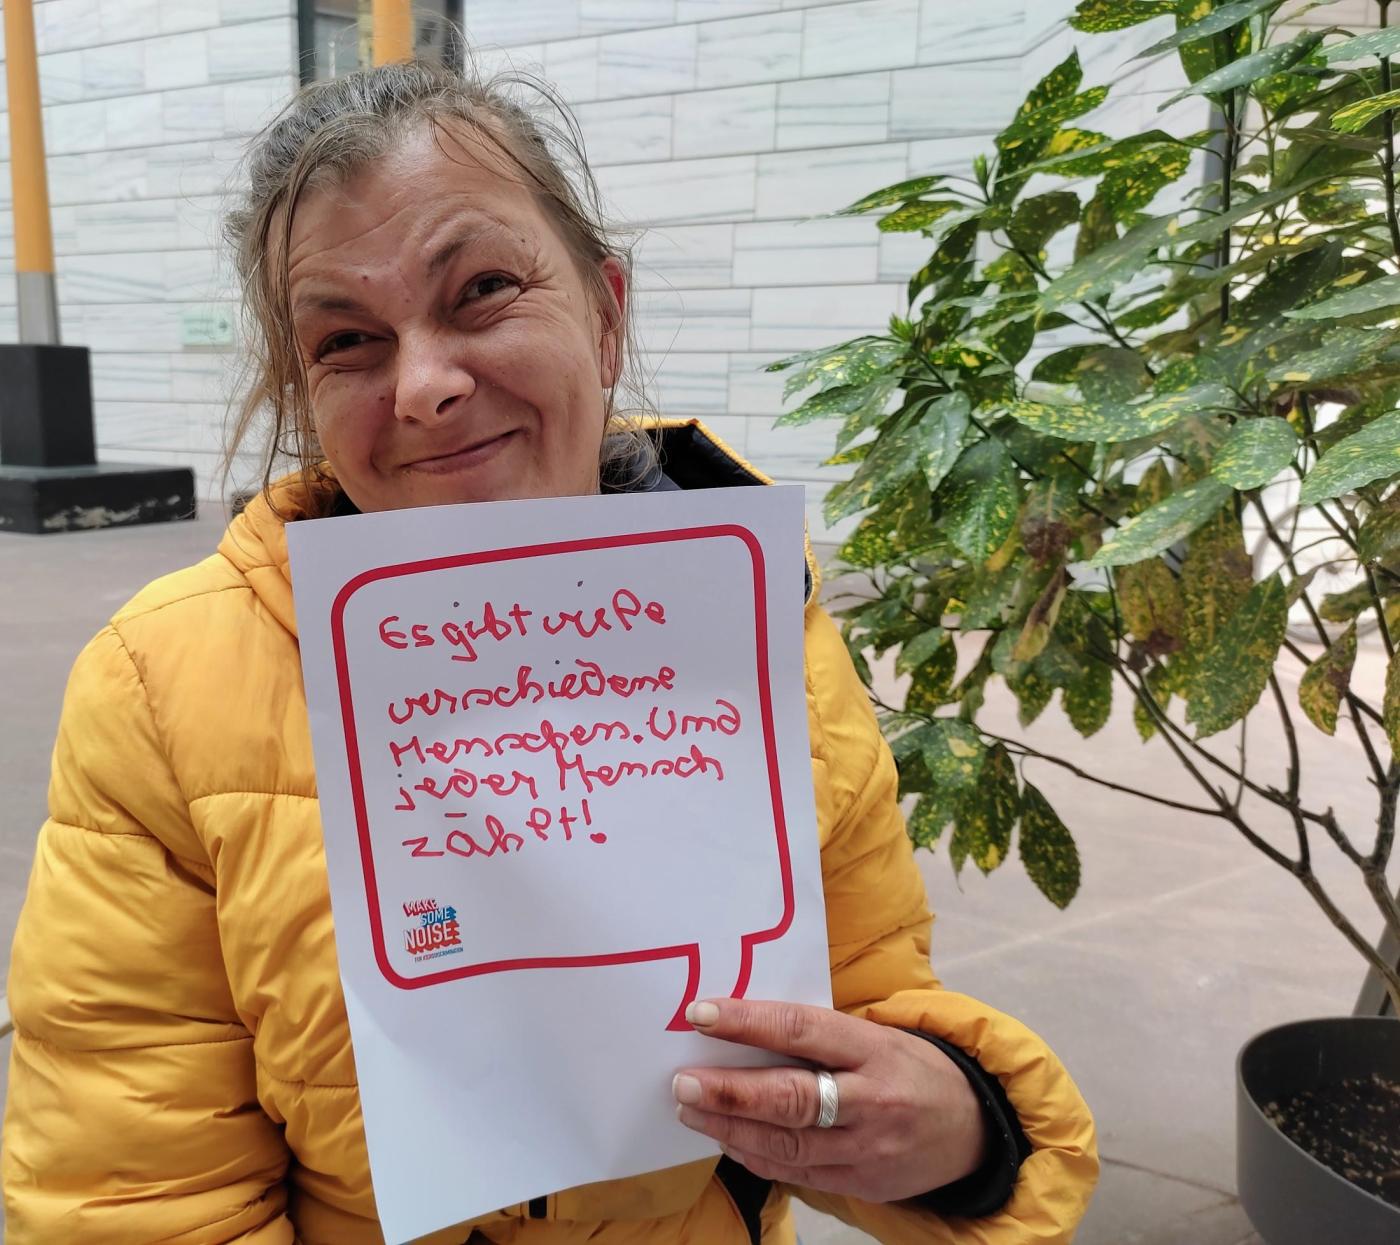 Es gibt viele
verschiedene
Menschen. Und
jeder Mensch
zählt!
MAKE
SOME
NOISE
FOR #ZERODISCRIMINATION